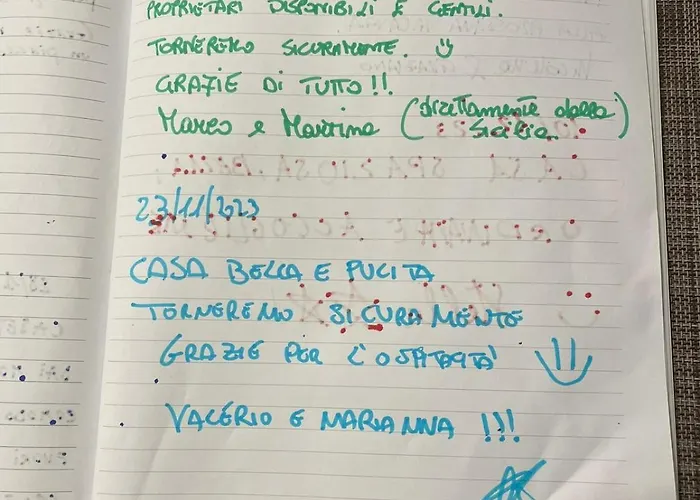 PROPRIETARI DISPONIBILI E GENTILI.
TORNEREMO SICURAMENTE.
GRAZIE DI TUTTO!!
Marco e Martina (direttamente dalla Sicilia)
23/11/2023
CASA BELLA E PULITA
TORNEREMO SICURAMENTE
GRAZIE PER L'OSPITALITÀ
VALERIO E MARIANNA !!!